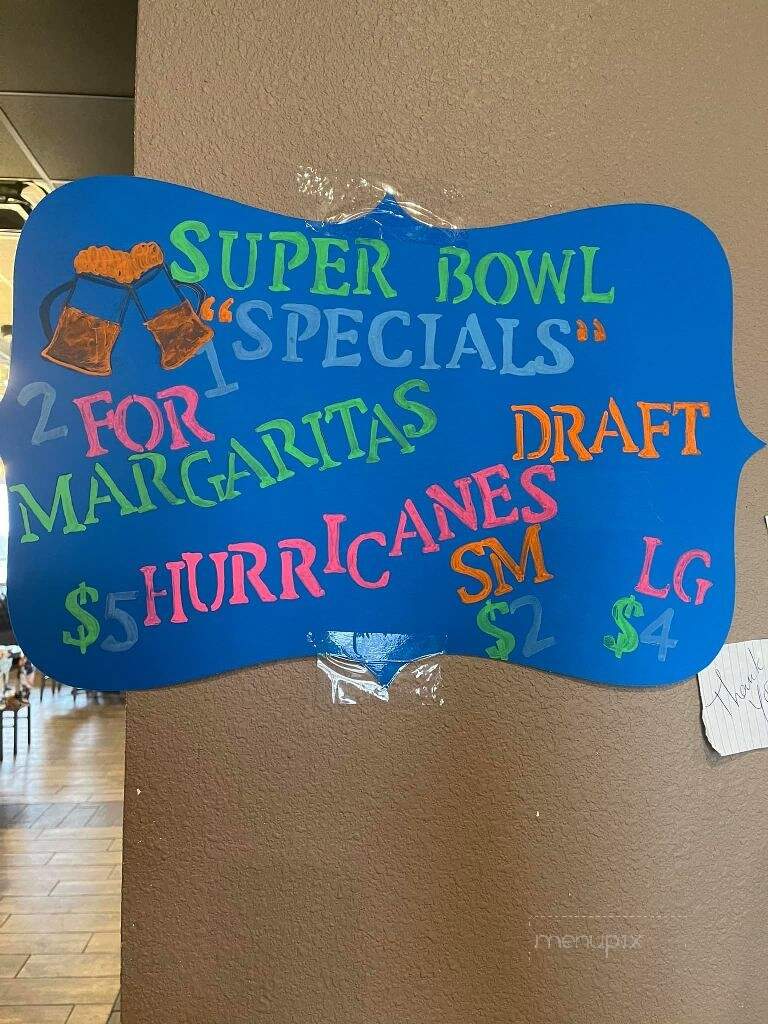 SUPER BOWL
"SPECIALS"
2 FOR 1
MARGARITAS
$5 HURRICANES
DRAFT
SM LG
$2 $4
Thank
menupix